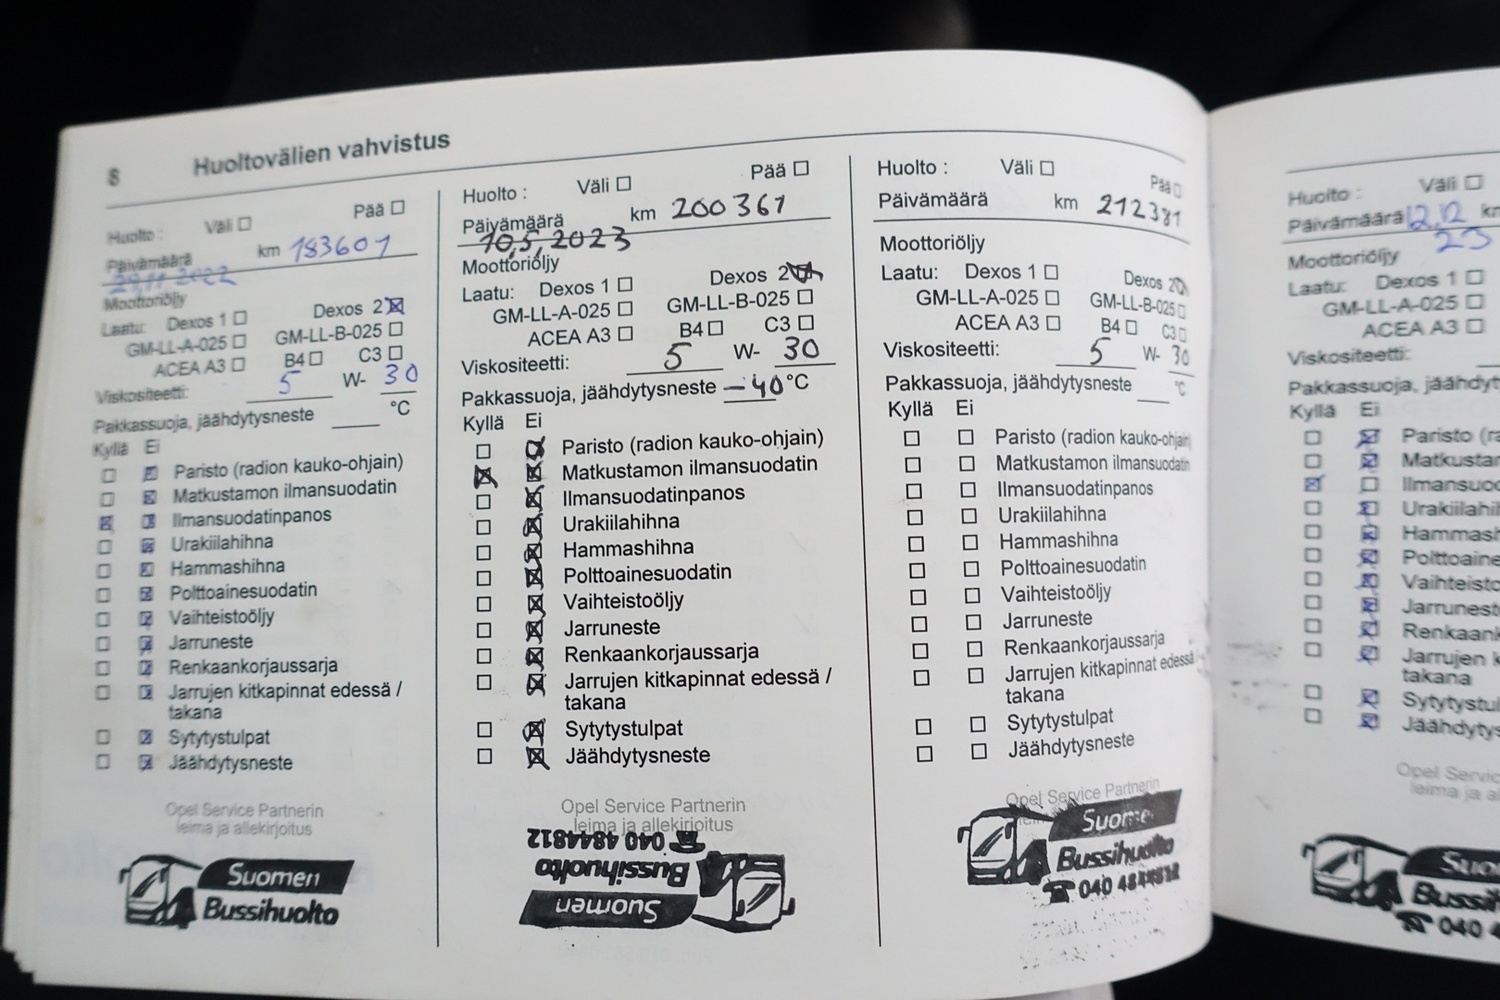 8 Huoltovälien vahvistus
Huolto : Väli Pää
Päivämäärä km 183601
29.11.2022
Moottoriöljy
Laatu: Dexos 1 Dexos 2
GM-LL-A-025 GM-LL-B-025
ACEA A3 B4 C3
Viskositeetti: 5 W- 30
Pakkassuoja, jäähdytysneste °C
Kyllä Ei
Paristo (radion kauko-ohjain)
Matkustamon ilmansuodatin
Ilmansuodatinpanos
Urakiilahihna
Hammashihna
Polttoainesuodatin
Vaihteistoöljy
Jarruneste
Renkaankorjaussarja
Jarrujen kitkapinnat edessä /
takana
Sytytystulpat
Jäähdytysneste
Opel Service Partnerin
leima ja allekirjoitus
Suomen
Bussihuolto
Huolto : Väli Pää
Päivämäärä km 200361
10,5,2023
Moottoriöljy
Laatu: Dexos 1 Dexos 2
GM-LL-A-025 GM-LL-B-025
ACEA A3 B4 C3
Viskositeetti: 5 W- 30
Pakkassuoja, jäähdytysneste -40°C
Kyllä Ei
Paristo (radion kauko-ohjain)
Matkustamon ilmansuodatin
Ilmansuodatinpanos
Urakiilahihna
Hammashihna
Polttoainesuodatin
Vaihteistoöljy
Jarruneste
Renkaankorjaussarja
Jarrujen kitkapinnat edessä /
takana
Sytytystulpat
Jäähdytysneste
Opel Service Partnerin
leima ja allekirjoitus
Suomen
Bussihuolto
040 4844812
Huolto : Väli Pää
Päivämäärä km 212381
Moottoriöljy
Laatu: Dexos 1 Dexos 2
GM-LL-A-025 GM-LL-B-025
ACEA A3 B4 C3
Viskositeetti: 5 W- 30
Pakkassuoja, jäähdytysneste °C
Kyllä Ei
Paristo (radion kauko-ohjain)
Matkustamon ilmansuodatin
Ilmansuodatinpanos
Urakiilahihna
Hammashihna
Polttoainesuodatin
Vaihteistoöljy
Jarruneste
Renkaankorjaussarja
Jarrujen kitkapinnat edessä /
takana
Sytytystulpat
Jäähdytysneste
Opel Service Partnerin
Suomen
Bussihuolto
040 4844812
Huolto : Väli
Päivämäärä 12.12 km
23
Moottoriöljy
Laatu: Dexos 1
GM-LL-A-025
ACEA A3
Viskositeetti:
Pakkassuoja, jäähdyt
Kyllä Ei
Paristo (ra
Matkustam
Ilmansuod
Urakiilahih
Hammash
Polttoaine
Vaihteisto
Jarrunest
Renkaank
Jarrujen k
takana
Sytytystul
Jäähdytys
Opel Servic
leima ja al
Suo
Bussih
040 4